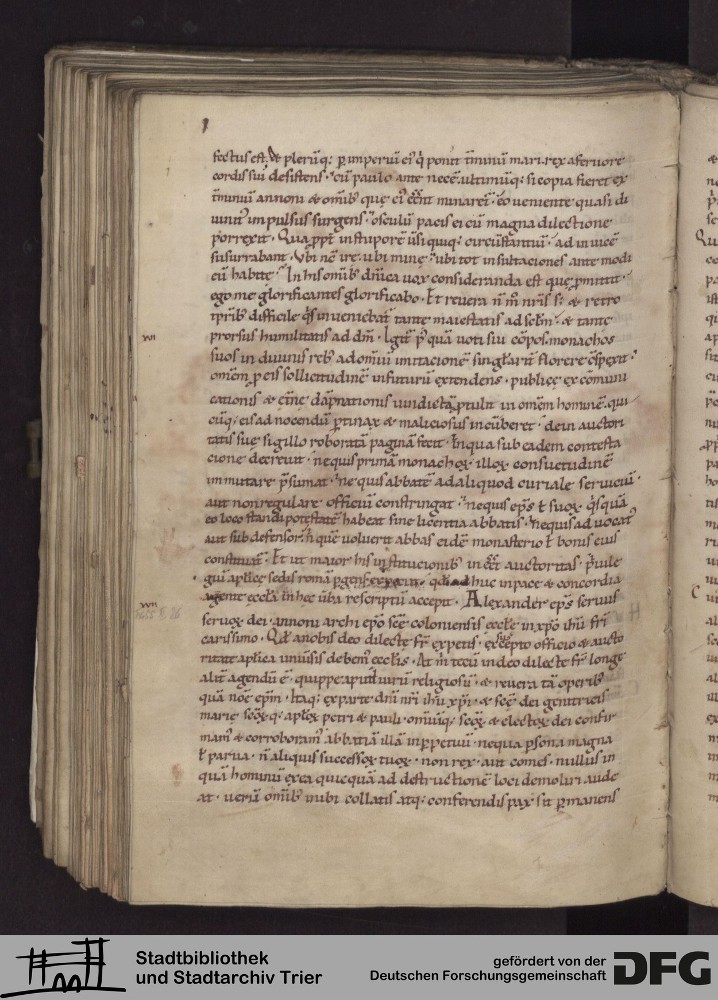 fectus est. & pleruq; p imperiu ei q ponit tminu mari. rex a feruore
cordis sui desistens. cu paulo ante nece. ultimuq; si copia fieret ex
tminiu annoni & omib que ei eent minaret. eo ueniente quasi di
uinit inpulsus surgens. osculu pacis ei cu magna dilectione
porrexit. Qua ppt in stupore usi quiq; circustantiu. ad inuice
susurrabant. Vbi ne ire. ubi mine. ubi tot insultationes ante modi
cu habite. In his omib dnica uox consideranda est que pmittit.
ego me glorificantes glorificabo. Et reuera n m nris s; & retro
tprib difficile qs inueniebat tante maiestatis ad sclm. & tante
prorsus humilitatis ad dm. Igit p qua uoti sui copos monachos
XVI
suos in diuinis reb ad omiu imitatione singlarit florere cspexit.
omem p eis sollicitudine in futuru extendens. publice excomuni
cationis & etne dapnationis uindicta ptulit in omem homine. qui
cuq; eis ad nocendu ptinax & maliciosus incuberet. dein auctori
tatis sue sigillo roborata pagina fecit. In qua sub eadem contesta
cione decreuit. ne quis prima monachox illox consuetudine
inmutare psumat. ne quis abbate ad aliquod curiale seruiciu
aut non regulare officiu constringat. ne quis eps l suox qsqua
eo loco standi potestate habeat sine licentia abbatis. ne quis aduocat
aut sub defensor. n que voluerit abbas eide monasterio l bonis eius
constituat. Et ut maior his institucionib in eet auctoritas. puile
giu aplice sedis roma pgens qd adhuc in pace & concordia
agente eccla in hec uba rescriptu accepit. Alexander eps seruus
XVII
seruox dei. annoni archi epo sce coloniensis eccle in xpo ihu fri
carissimo. Qd a nobis deo dilecte fr expetis. excepto officio & aucto
ritate aplica uniusis debem ecclis. At m tecu in deo dilecte fr longe
alit agendu e. quippe aput uiru religiosu. & reuera ta operib
qua noe epm. Itaq; ex parte dni nri ihu xpi. & sce dei genitricis
marie. scoxq; aplox petri & pauli. omiuq; scox & electox dei confir
mam & corroboram abbatia illa inppetuu. ne qua psona magna
l parua. n aliquis successox tuox. non rex. aut comes. nullus in
qua hominu ex ea quicqua ad destructione loci demoliri aude
at. ueru omib inibi collatis atq; conferendis pax sit pmanens
Stadtbibliothek
und Stadtarchiv Trier
gefördert von der
Deutschen Forschungsgemeinschaft
DFG